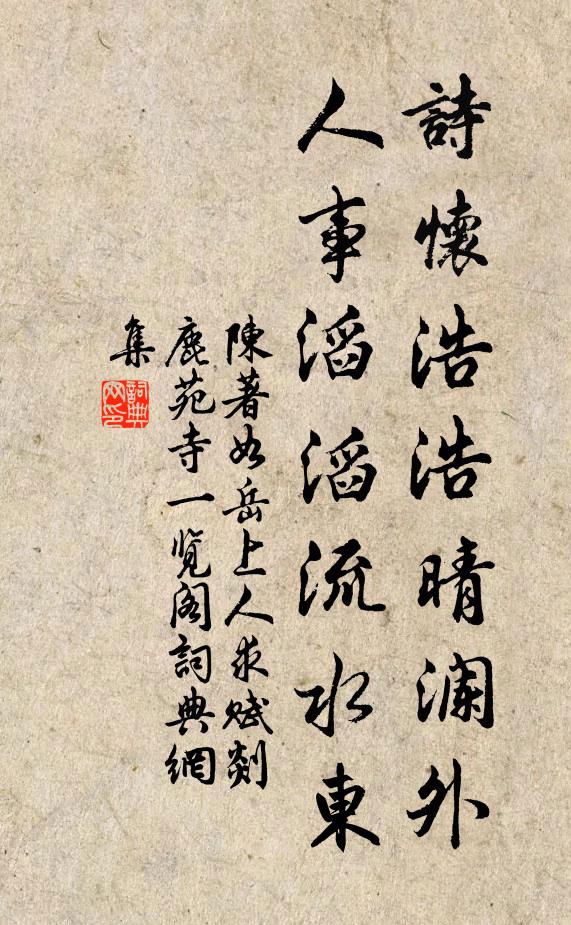 詩懷浩浩晴瀾外
人事滔滔流水東
陳著如岳上人求賦剡
鹿苑寺一覽閣詞典網
集
詞典網印